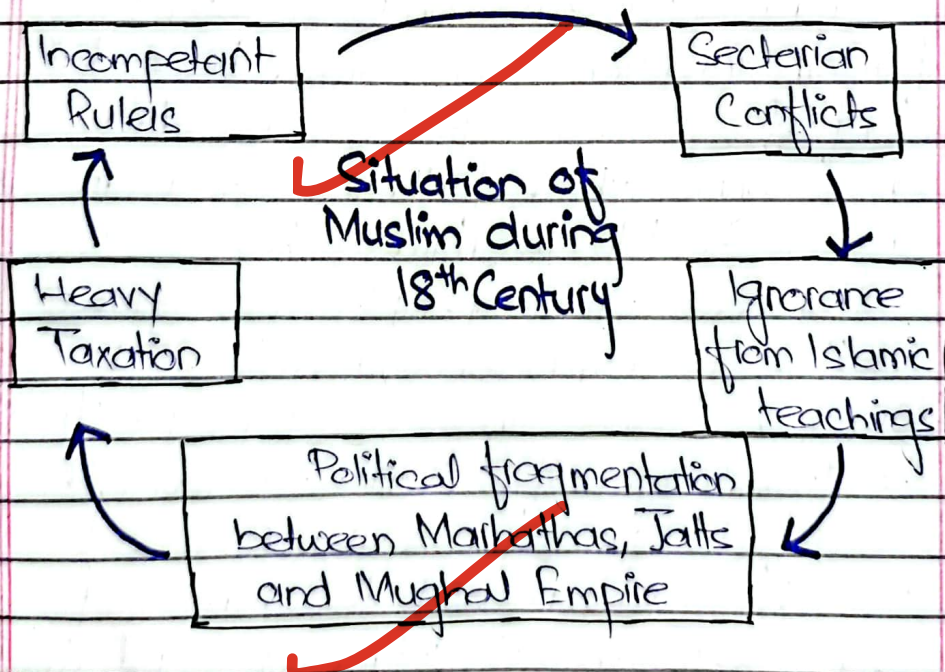 Incompetant
Rulers
Sectarian
Conflicts
Situation of
Muslim during
18th Century
Heavy
Taxation
Ignorance
from Islamic
teachings
Political fragmentation
between Marhathas, Jatts
and Mughal Empire